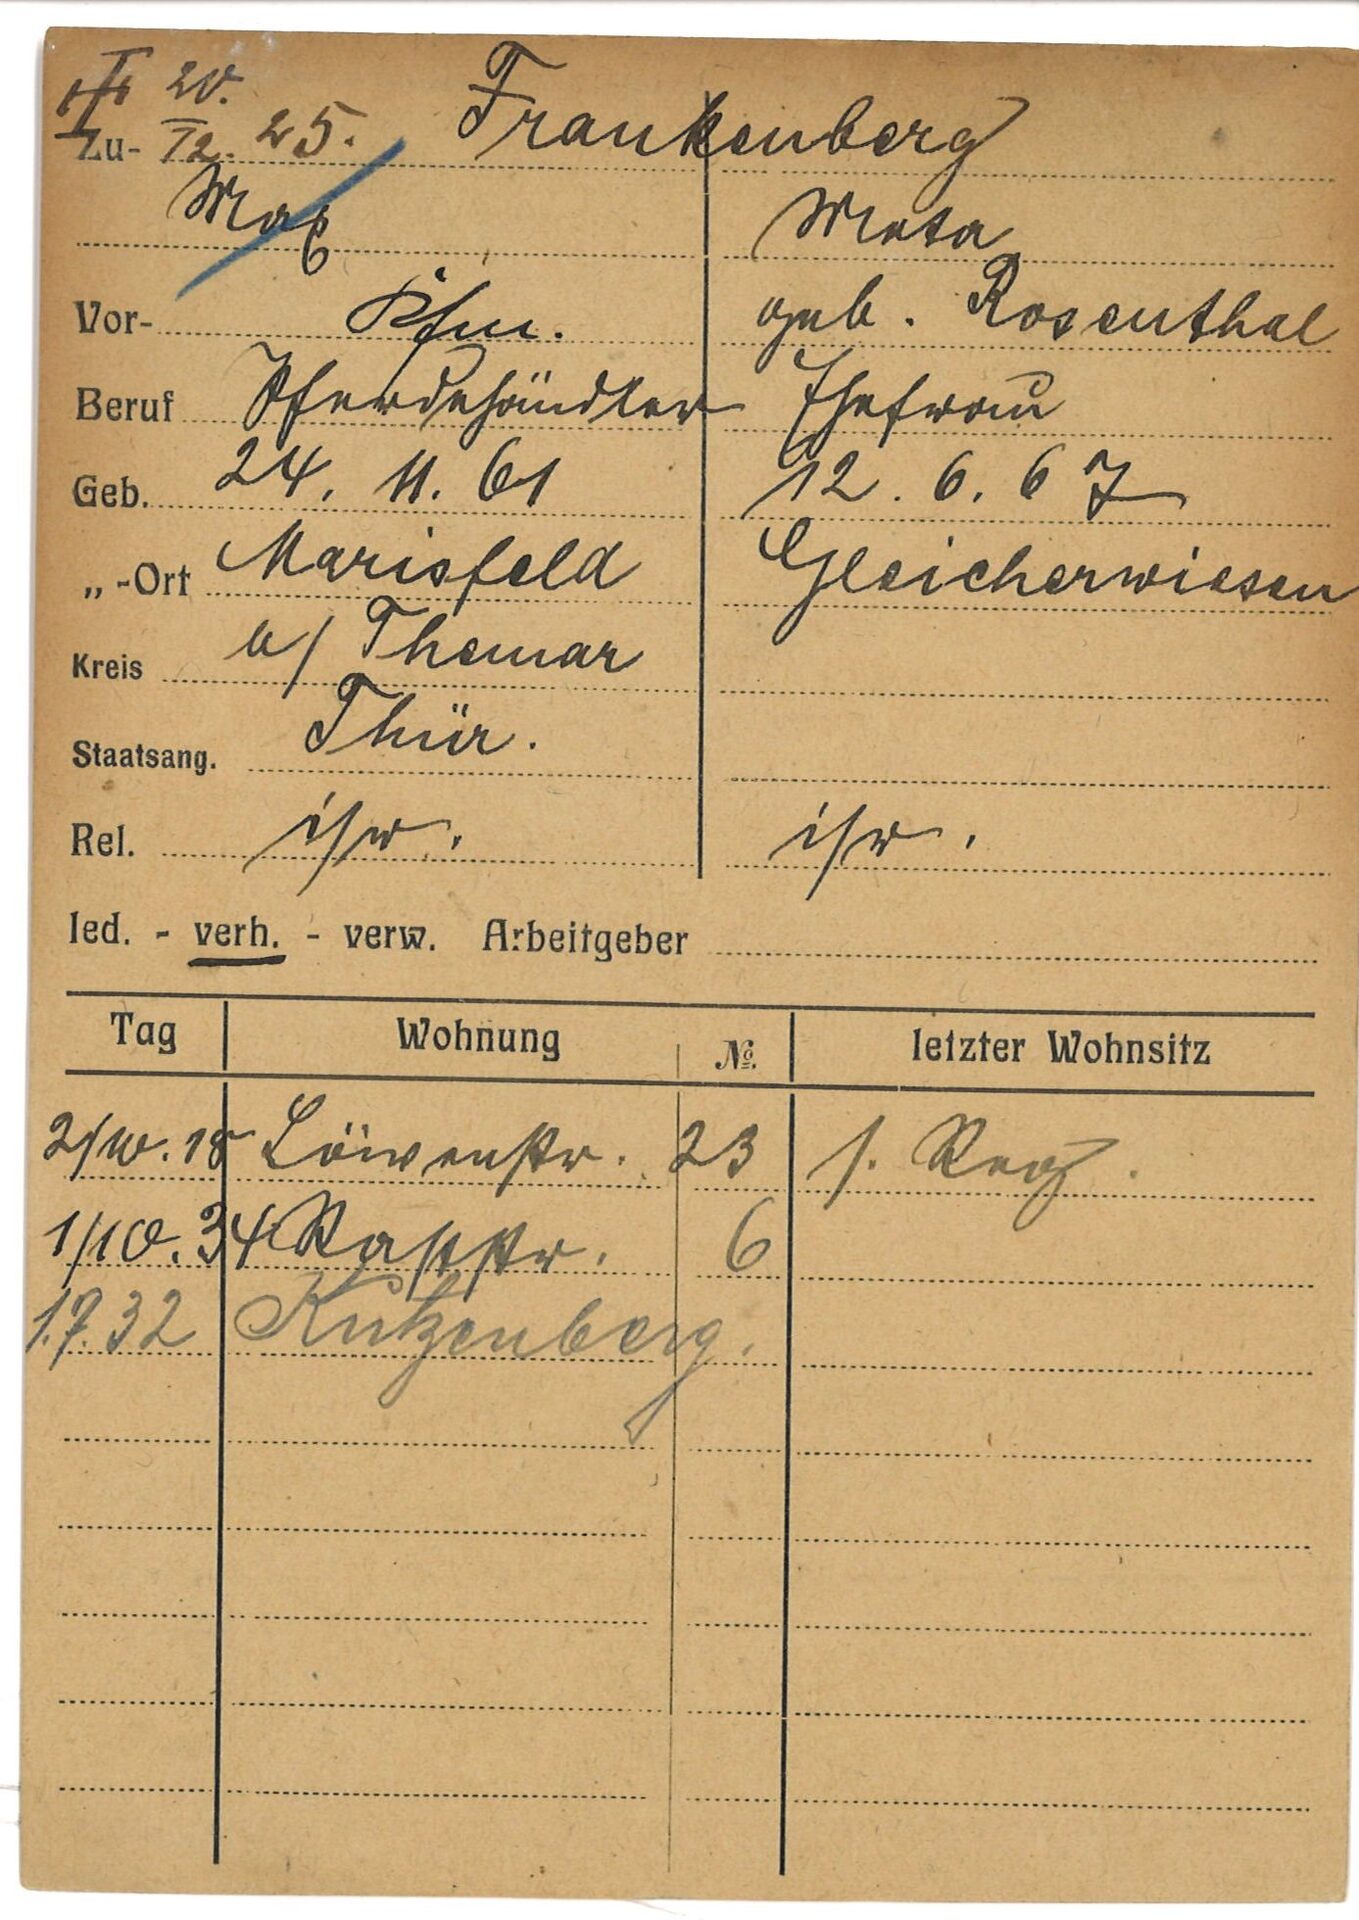 20.
Zu- 12. 25. Frankenberg
Max Meta
Vor- Kfm. geb. Rosenthal
Beruf Pferdehändler Ehefrau
Geb. 24. 11. 61 12. 6. 67
„-Ort Marisfeld Gleicherwiesen
Kreis b/ Themar
Staatsang. Thür.
Rel. isr. isr.
led. - verh. - verw. Arbeitgeber
Tag Wohnung No. letzter Wohnsitz
Löwenstr. 23 s. Reg.
1/10. 34 Raststr. 6
1.7.32 Kutzenberg.